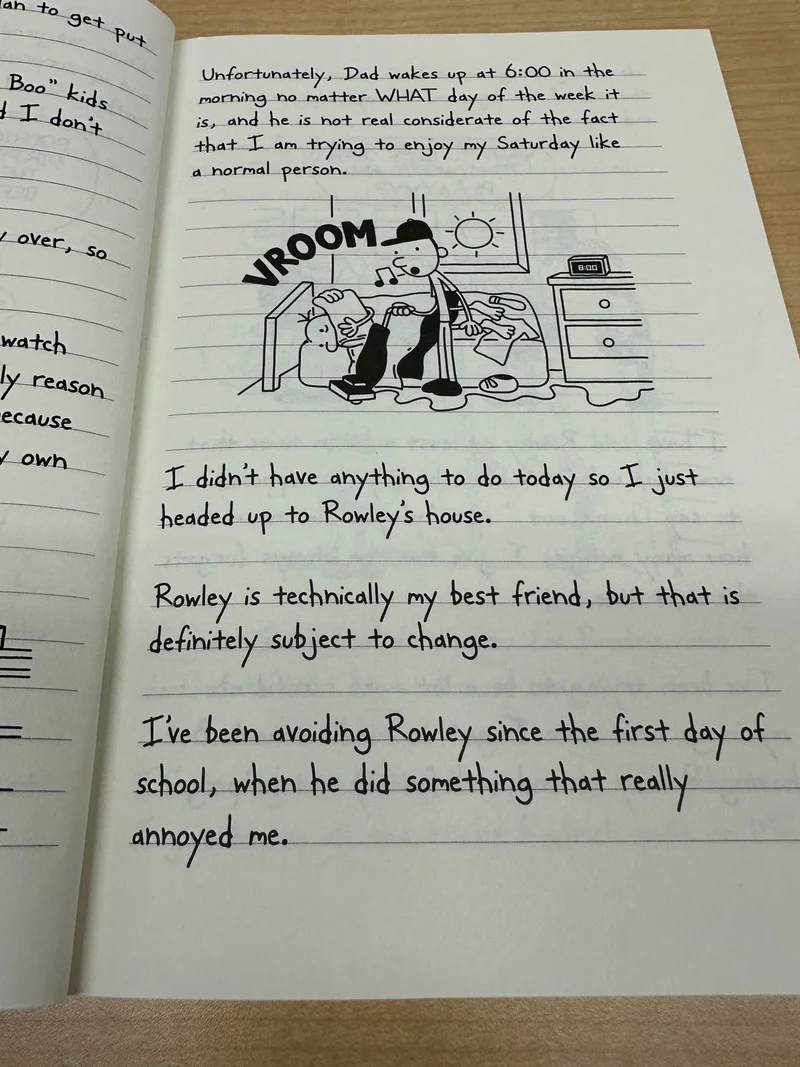 an to get put
Boo" kids
d I don't
y over, so
watch
ly reason
ecause
y own
Unfortunately, Dad wakes up at 6:00 in the
morning no matter WHAT day of the week it
is, and he is not real considerate of the fact
that I am trying to enjoy my Saturday like
a normal person.
VROOM
8:00
I didn't have anything to do today so I just
headed up to Rowley's house.
Rowley is technically my best friend, but that is
definitely subject to change.
I've been avoiding Rowley since the first day of
school, when he did something that really
annoyed me.